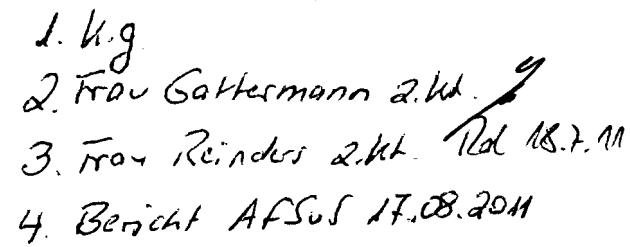 1. K.g
2. Frau Gattermann z.Kt.
3. Frau Reinders z.Kt. Rd 18.7.11
4. Bericht AfSuS 17.08.2011